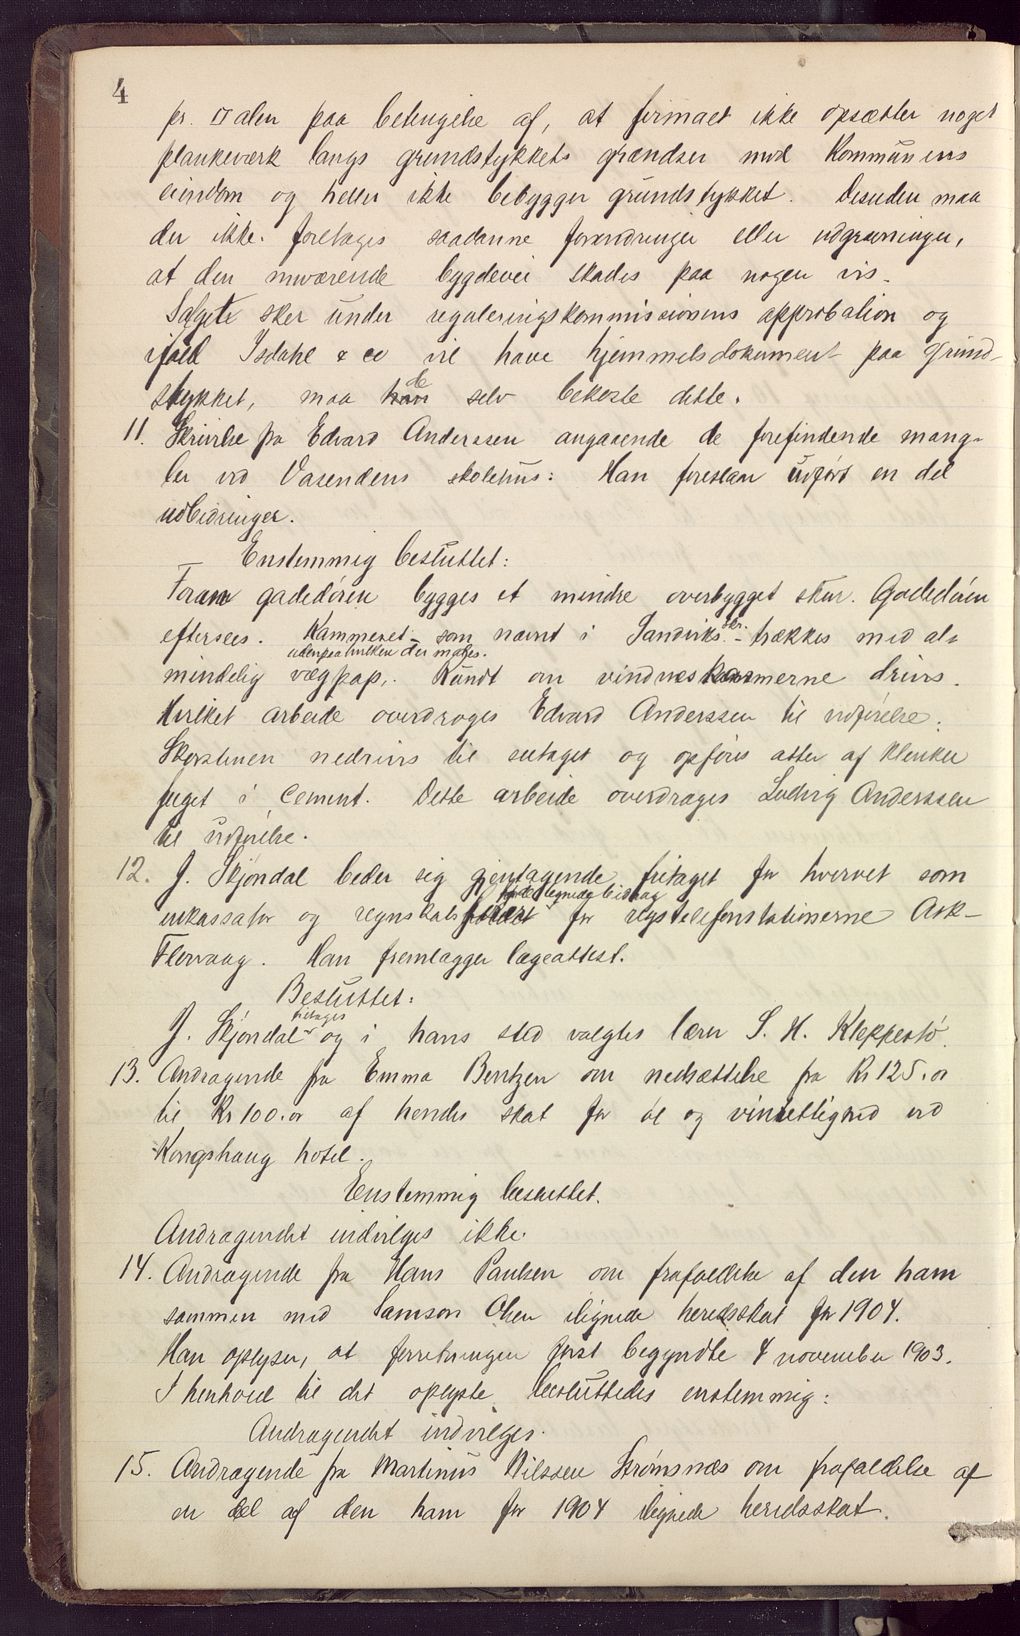 4
pr. □ alen paa betingelse af, at firmaet ikke opsætter noget
plankeværk langs grundstykkets grændser mod Kommunens
eiendom og heller ikke bebygger grundstykket. Desuden maa
der ikke foretages saadanne forandringer eller udgravninger,
at den nuværende bygdevei skades paa nogen vis.
Salget sker under reguleringskommissionens approbation og
ifald Isdahl & co vil have hjemmelsdokument paa grund-
stykket, maa de selv bekoste dette.
11. Skrivelse fra Edvard Anderssen angaaende de forefindende mang-
ler ved Vasendens skolehus: Han foreslaar udført en del
udbedringer.
Enstemmig besluttet:
Foran gadedøren bygges et mindre overbygget skur. Gadedøren
eftersees. Kammeret - som nævnt i Sandviks skr. - trækkes med al-
udenpaa hvilken der males.
mindelig vægpap,. Rundt om vindueskarmerne drives.
Hvilket arbeide overdrages Edvard Anderssen til udførelse.
Skorstenen nedrives til setaget og opføres atter af klenker
fuget i cement. Dette arbeide overdrages Ludvig Anderssen
til udførelse.
12. J. Skjøndal beder sig gjentagende fritaget for hvervet som
inkassator og regnskabsfører for udlignede bidrag for rigstelefonstationerne Ask-
Florvaag. Han fremlægger lægeattest.
Besluttet:
J. Skjøndal fritages og i hans sted valgtes lærer S. H. Kleppestø.
13. Andragende fra Emma Berntzen om nedsættelse fra Kr 125.00
til Kr 100.00 af hendes skat for øl og vinrettighed ved
Kongshaug hotel.
Enstemmig besluttet.
Andragendet indvilges ikke.
14. Andragende fra Hans Paulsen om frafaldelse af den ham
sammen med Samson Olsen ilignede heredsskat for 1904.
Han oplyser, at forretningen først begyndte 4 november 1903.
I henhold til det oplyste besluttedes enstemmig:
Andragendet indvilges.
15. Andragende fra Martinus Nilssen Strømsnæs om frafaldelse af
en del af den ham for 1904 ilignede heredsskat.